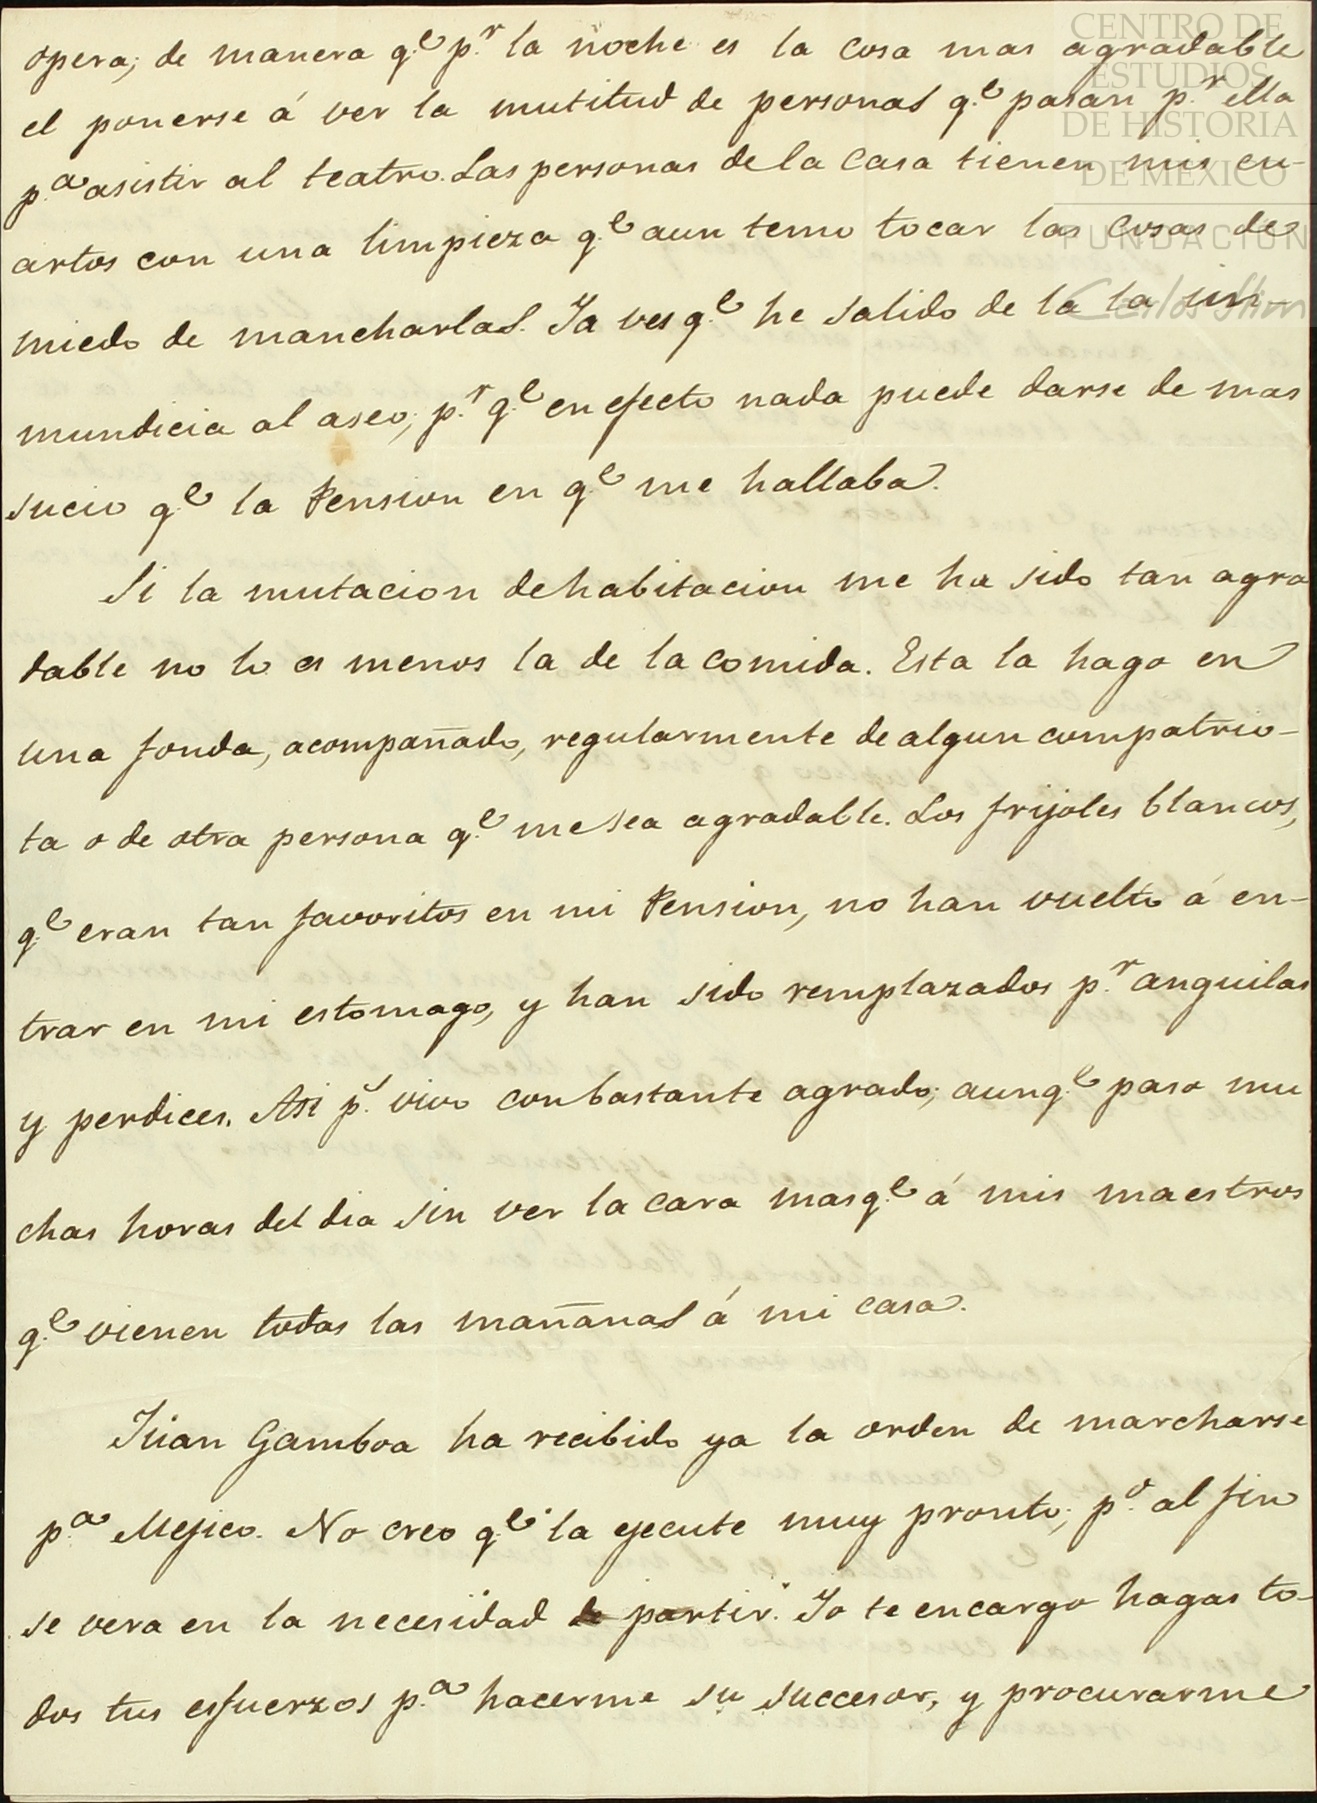 opera; de manera q.e p.r la noche es la cosa mas agradable
el ponerse á ver la mutitud de personas q.e pasan p.r ella
p.a asistir al teatro. Las personas de la casa tienen mis cu-
artos con una limpieza q.e aun temo tocar las cosas de
miedo de mancharlas. Ya ves q.e he salido de la la in-
mundicia al aseo; p.r q.e en efecto nada puede darse de mas
sucio q.e la Pension en q.e me hallaba.
Si la mutacion de habitacion me ha sido tan agra
dable no lo es menos la de la comida. Esta la hago en
una fonda, acompañado, regularmente de algun compatrio-
ta o de otra persona q.e me sea agradable. Los frijoles blancos,
q.e eran tan favoritos en mi Pension, no han vuelto á en-
trar en mi estomago, y han sido remplazados p.r anguilas
y perdices. Asi p.s vivo con bastante agrado; aunq.e paso mu
chas horas del dia sin ver la cara mas q.e á mis maestros
q.e vienen todas las mañanas á mi casa.
Juan Gamboa ha recibido ya la orden de marcharse
p.a Mejico. No creo q.e la ejecute muy pronto; p.o al fin
se vera en la necesidad de partir. Yo te encargo hagas to-
dos tus esfuerzos p.a hacerme su succesor, y procurarme
CENTRO DE
ESTUDIOS
DE HISTORIA
DE MÉXICO
FUNDACIÓN
Carlos Slim